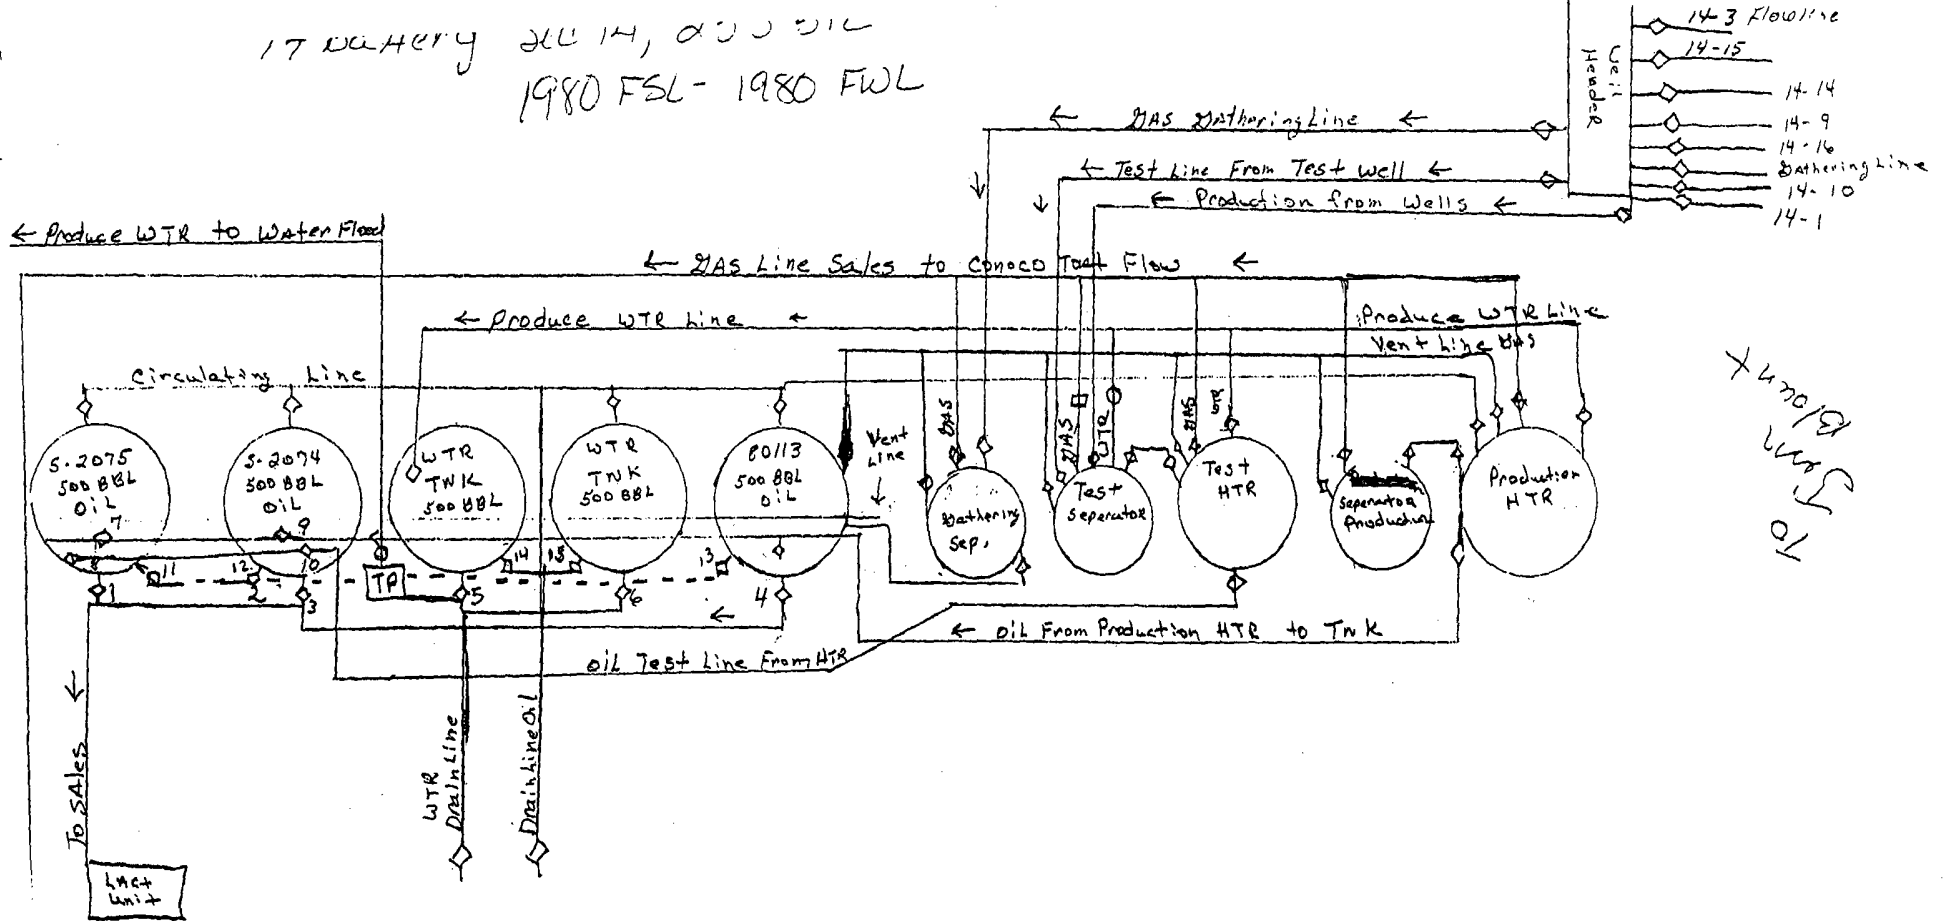 14-3 Flowline
14-15
14-14
14-9
14-16
Gathering Line
14-10
14-1
Header
Battery
14,
1980 FSL - 1980 FWL
← GAS Gathering Line ←
← Test Line From Test Well ←
← Production from Wells ←
← Produce WTR to Water Flood
← GAS Line Sales to Conoco Flow ←
← Produce WTR Line ←
Produce WTR Line
Vent Line GAS
Circulating Line
To
S-2075
500 BBL
OiL
7
8
S-2074
500 BBL
OiL
9
10
WTR
TNK
500 BBL
WTR
TNK
500 BBL
80113
500 BBL
OiL
Vent
Line
GAS
GAS
WTR
GAS
WTR
Gathering
Sep.
Test
Seperator
Test
HTR
Seperator
Production
Production
HTR
11
12
14
13
TP
1
2
3
5
6
4
←
← OiL From Production HTR to TNK
OiL Test Line From HTR
To SAles
WTR
Drain Line
Drain Line Oil
LAct
Unit